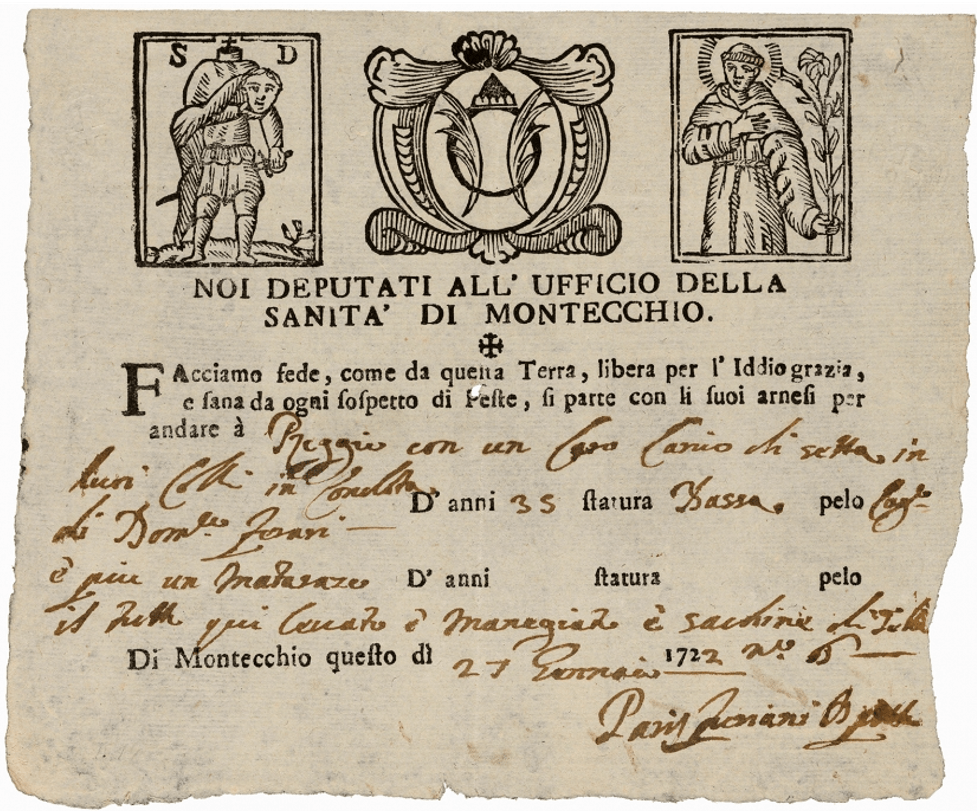 S D
NOI DEPUTATI ALL' UFFICIO DELLA
SANITA' DI MONTECCHIO.
FAcciamo fede, come da questa Terra, libera per l'Iddio grazia,
e sana da ogni sospetto di Peste, si parte con li suoi arnesi per
andare à Reggio con un Caro Carico di setta in
Colli in Condotta D' anni 35 statura Bassa. pelo
di Dom.co Ferrari
è piu un Matarazo D' anni statura pelo
il tutto qui è
Di Montecchio questo dì 27 Gennaio 1722